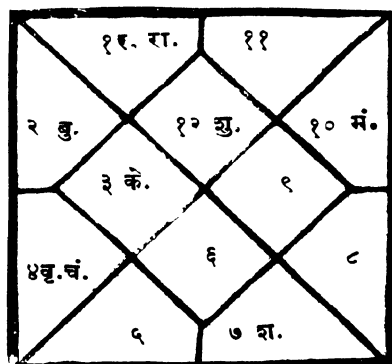 १र. रा. ११
२ बु. १२ शु. १० मं.
३ के. ९
४वृ.चं. ६ ८
५ ७ श.